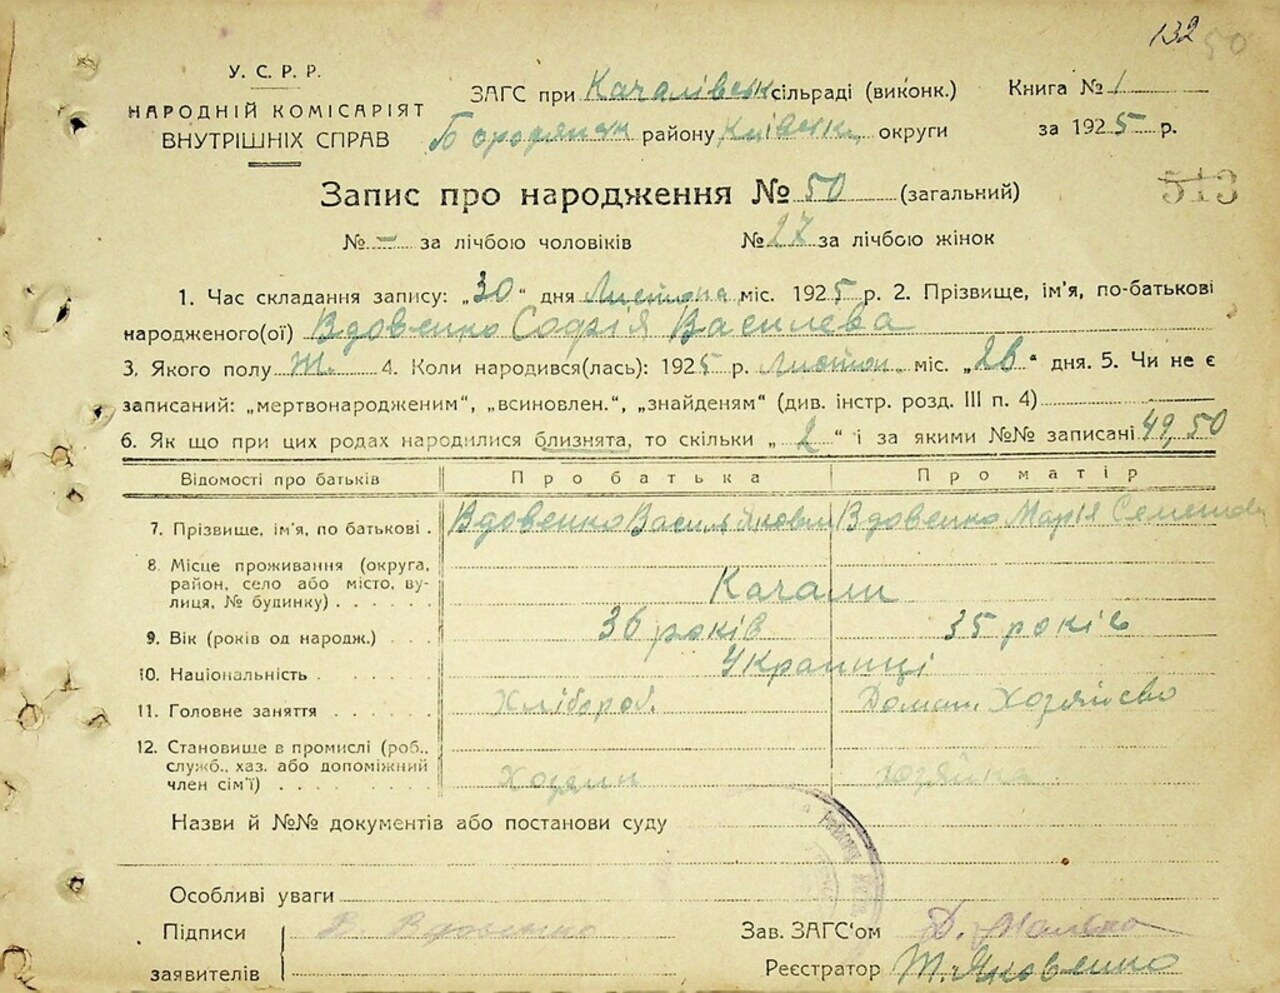 132 50
У. С. Р. Р.
НАРОДНІЙ КОМІСАРІЯТ
ВНУТРІШНІХ СПРАВ
ЗАГС при Качалівськ сільраді (виконк.)
Бородянськ району Київськ округи
Книга № 1
за 1925 р.
513
Запис про народження № 50 (загальний)
№ — за лічбою чоловіків № 27 за лічбою жінок
1. Час складання запису: „30“ дня Листопа міс. 1925 р. 2. Прізвище, ім'я, по-батькові
народженого(ої) Вдовенко Софія Василева
3. Якого полу Ж. 4. Коли народився(лась): 1925 р. Листоп. міс. „26“ дня. 5. Чи не є
записаний: „мертвонародженим“, „всиновлен.“, „знайденям“ (див. інстр. розд. III п. 4)
6. Як що при цих родах народилися близнята, то скільки „2“ і за якими №№ записані 49, 50
Відомості про батьків Про батька Про матір
7. Прізвище, ім'я, по батькові . Вдовенко Василь Якович Вдовенко Марія Семенов
8. Місце проживання (округа,
район, село або місто, ву-
лиця, № будинку) . . . . . . Качали
9. Вік (років од народж.) . . . 36 років 35 років
10. Національність . . . . . . Українці
11. Головне заняття . . . . . . Хлібороб. Домаш. Хозяйсво
12. Становище в промислі (роб.,
служб., хаз. або допоміжний
член сім'ї) . . . . . . . . Хозяин Хозяйка
Назви й №№ документів або постанови суду
Особливі уваги
Підписи
заявителів
В. Вдовенко
Зав. ЗАГС'ом Д.
Реєстратор Т. Яковенко